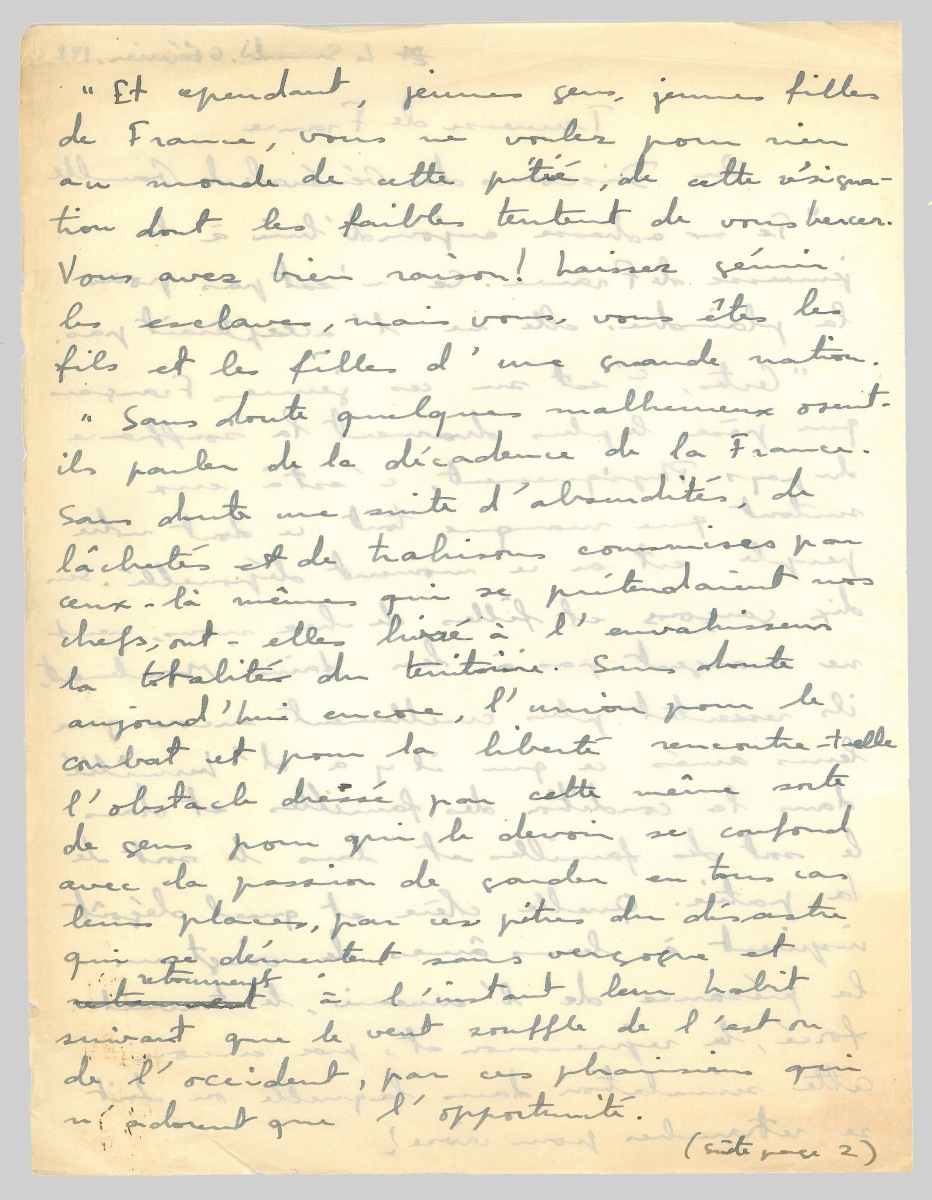 " Et cependant, jeunes gens, jeunes filles
de France, vous ne voulez pour rien
au monde de cette pitié, de cette résigna-
tion dont les faibles tentent de vous bercer.
Vous avez bien raison! Laissez gémir
les esclaves, mais vous, vous êtes les
fils et les filles d'une grande nation.
" Sans doute quelques malheureux osent-
ils parler de la décadence de la France.
Sans doute une suite d'absurdités, de
lâchetés et de trahisons commises par
ceux-là mêmes qui se prétendaient nos
chefs, ont-elles livré à l'envahisseur
la totalité du territoire. Sans doute
aujourd'hui encore, l'union pour le
combat et pour la liberté rencontre-t-elle
l'obstacle dressé par cette même sorte
de gens pour qui le devoir se confond
avec la passion de garder en tous cas
leurs places, par ces pitres du désastre
qui se démentent sans vergogne et
retournent
à l'instant leur habit
suivant que le vent souffle de l'est ou
de l'occident, par ces pharisiens qui
n'adorent que l'opportunité.
(suite page 2)